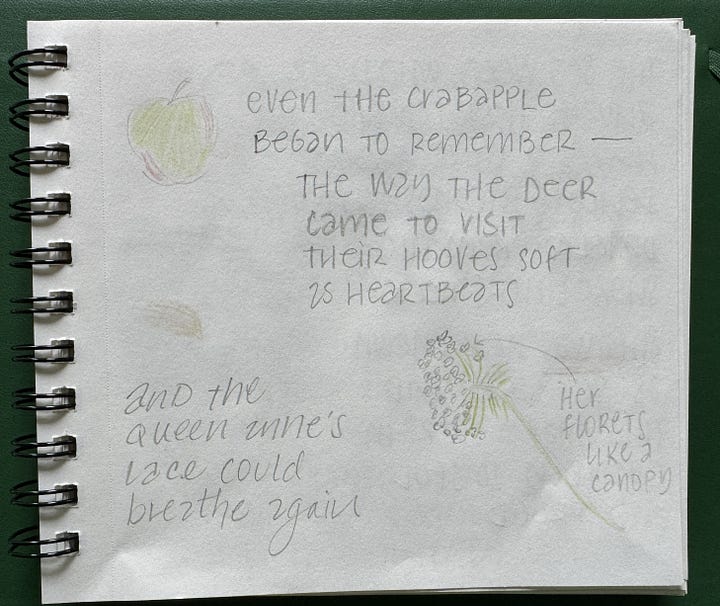 even the crabapple
began to remember —
the way the deer
came to visit
their hooves soft
as heartbeats
and the
queen anne's
lace could
breathe again
Her
florets
like a
canopy